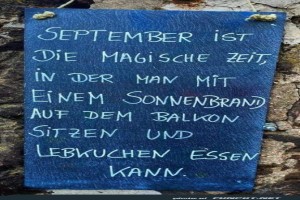 SEPTEMBER IST
DIE MAGISCHE ZEIT,
IN DER MAN MIT
EINEM SONNENBRAND
AUF DEM BALKON
SITZEN UND
LEBKUCHEN ESSEN
KANN.